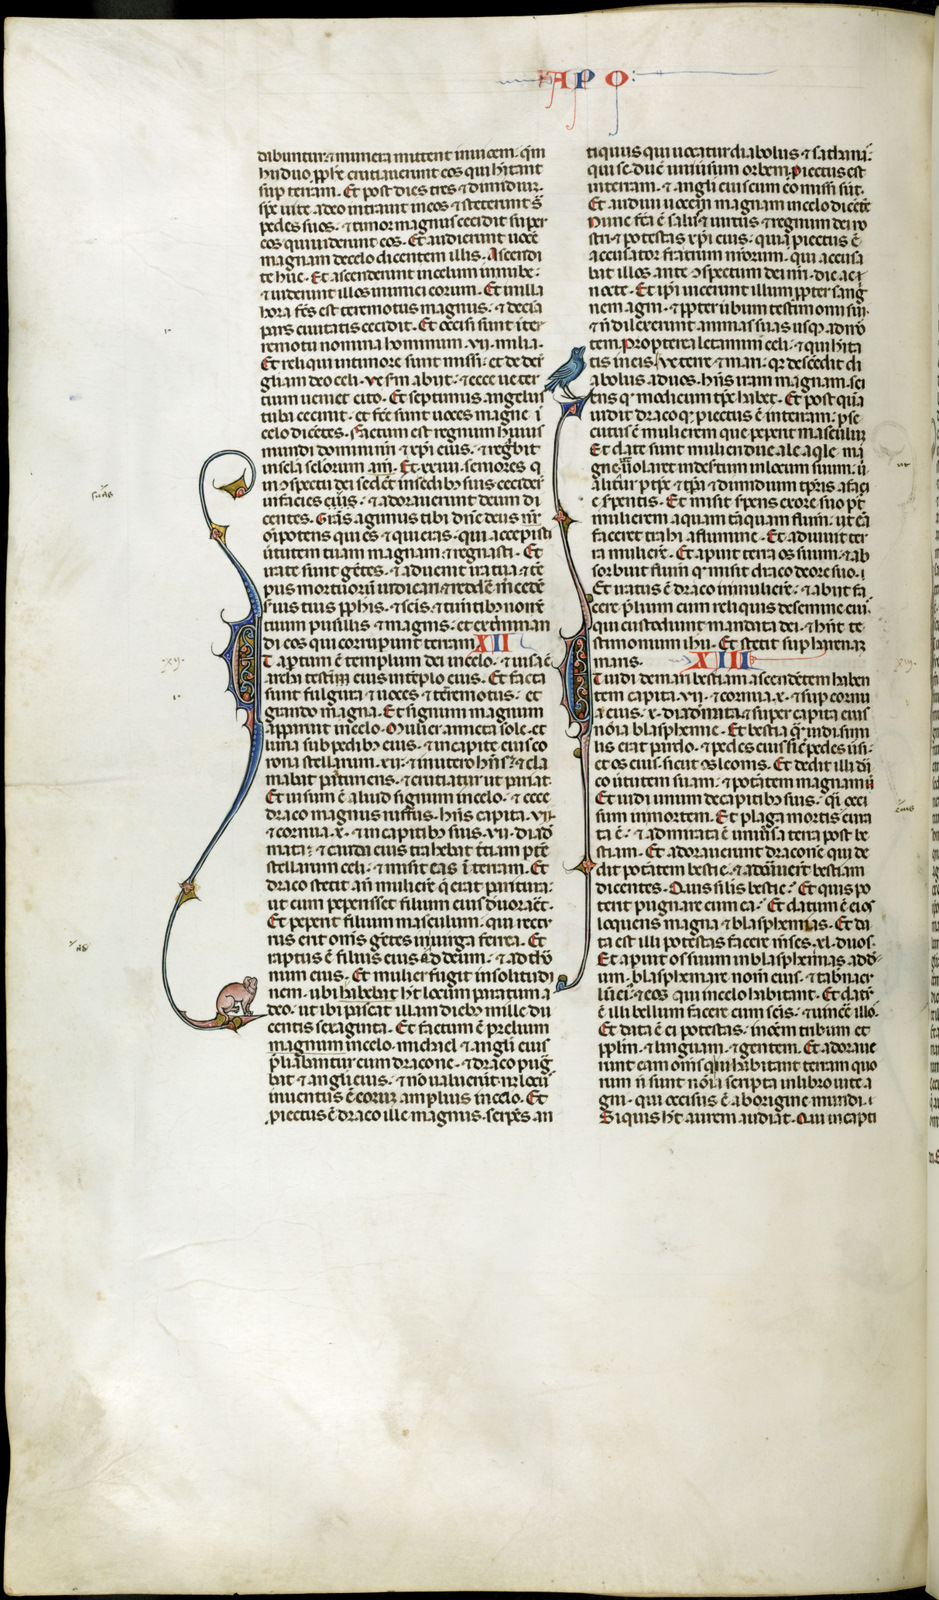 APO
dabuntur ⁊ munera mittent inuicem · qm̄
hii duo ꝓphe cruciauerunt eos qui hitant
sup terram · Et post dies tres ⁊ dimidiū ·
sps uite a deo intrauit in eos ⁊ steterunt s̄
pedes suos · ⁊ timor magnus cecidit super
eos qui uiderunt eos · Et audierunt uocē
magnam de celo dicentem illis · Ascendi
te huc · Et ascenderunt in celum in nube ·
⁊ uiderunt illos inimici eorum · Et in illa
hora fc̄s est terremotus magnus · ⁊ decia
pars ciuitatis cecidit · Et occisi sunt ī ter
remotu nomina hominum · vii · milia ·
Et reliqui in timore sunt missi · et dederūt
gliam deo celi · ve scdm abiit · ⁊ ecce ue ter
cium ueniet cito · Et septimus angelus
tuba cecinit · et fc̄e sunt uoces magne ī
celo dicētes · Factum est regnum huius
mundi domini nri ⁊ xpi eius · ⁊ regbit
in scla sclorum am̄ · Et xxiiii · seniores q̄
in ɔspectu dei sedēt in sedibꝫ suis cecider̄
in facies suas · ⁊ adorauerunt deum di
centes · Gr̄as agimus tibi dn̄e deus nr̄
om̄potens qui es ⁊ qui eras · qui accepisti
ūtutem tuam magnam ⁊ regnasti · Et
irate sunt gētes · ⁊ aduenit ira tua ⁊ tē
pus mortuorū iudicari ⁊ reddē mcedē
suis tuis ꝓphis · ⁊ scis · ⁊ timtibꝫ nomē
tuum pusillis ⁊ magnis · et extminan
di eos qui corrupunt terram XII
Et aptum ē templum dei in celo · ⁊ uisa ē
archa testim̄ eius in tēplo eius · Et facta
sunt fulgura ⁊ uoces ⁊ terremotus · et
grando magna · Et signum magnum
apparuit in celo · Mulier amicta sole · et
luna sub pedibꝫ eius · ⁊ in capite eius co
rona stellarum · xii · ⁊ in utero hn̄s · ⁊ cla
mabat parturiens · ⁊ cruciatur ut pariat ·
Et uisum ē aliud signum in celo · ⁊ ecce
draco magnus ruffus · hn̄s capita · vii ·
⁊ cornua · x · ⁊ in capitibꝫ suis · vii · diad
mata · ⁊ cauda eius trahebat tciam ptē
stellarum celi · ⁊ misit eas ī terram · Et
draco stetit an̄ mulierē q̄ erat paritura ·
ut cum peperisset filium eius deuoraret ·
Et peperit filium masculum · qui rectu
rus erit om̄s gētes in uirga ferrea · Et
raptus ē filius eius ad deum · ⁊ ad thro
num eius · Et mulier fugit in solitudi
nem · ubi habebat ht locum paratum a
deo · ut ibi pascat illam diebꝫ mille du
centis sexaginta · Et factum ē prelium
magnum in celo · michael ⁊ angli eius
p̄liabantur cum dracone · ⁊ draco pug
bat ⁊ angli eius · ⁊ nō ualuerūt · nꝫ locꝫ
inuentus ē eorum amplius in celo · Et
proiectus ē draco ille magnus · serpēs an
tiquus qui uocatur diabolus ⁊ sathanas
qui seducit uniūsum orbem · proiectus est
in terram · ⁊ angli eius cum eo missi sūt ·
Et audiui uocem magnam in celo dicētē
Nunc fc̄a ē salus ⁊ uirtus ⁊ regnum dei nr̄o
stri ⁊ potestas xpi eius · quia proiectus ē
accusator fratrum nrorum · qui accusa
bat illos ante ɔspectum dei nri · die ac
nocte · Et ipi uicerunt illum ꝓpter sang
nem agni · ⁊ ꝓpter ūbum testimonii sui ·
⁊ n̄ dilexerunt animas suas usqꝫ ad mor
tem · Propterea letamini celi · ⁊ qui hita
tis in eis · ve terre ⁊ mari · qr descēdit di
abolus ad uos · hn̄s iram magnam · sci
ens qr modicum tp̄s habet · Et postqua
uidit draco qr proiectus ē in terram · pse
cutus ē mulierem que peperit masculum
Et date sunt mulieri due ale aqle ma
gne ut uolaret in desertum in locum suum · ū
alitur ꝑ tp̄s · ⁊ tp̄ra ⁊ dimidium tp̄ris a faci
e serpentis · Et misit spens ex ore suo pt
mulierem aquam tāquam flum̄ · ut eā
faceret trahi a flumine · Et adiuuit ter
ra mulierē · Et aperuit terra os suum · ⁊ ab
sorbuit flum̄ qr misit draco de ore suo ·
Et iratus ē draco in mulierē · ⁊ abiit fa
cere p̄lium cum reliquis de semine eius
qui custodiunt mandata dei · ⁊ hn̄t te
stimonium ihu · Et stetit sup harenam
maris · XIII
Et uidi de mari bestiam ascendētem haben
tem capita · vii · ⁊ cornua · x · ⁊ sup cornu
a eius · x · diademata · ⁊ super capita eius
noīa blasphemie · Et bestia q̄m uidi sim̄
lis erat pardo · ⁊ pedes eius sicut pedes ursi ·
et os eius · sicut os leonis · Et dedit illi dra
co ūtutem suam · ⁊ potātem magnam
Et uidi unum de capitibꝫ suis · qi occi
sum in mortem · Et plaga mortis cura
ta ē · ⁊ admirata ē uniūsa terra post be
stiam · Et adorauerunt draconē qui de
dit potātem bestie · ⁊ adorauerūt bestiam
dicentes · Quis similis bestie · Et quis po
terit pugnare cum ea · Et datum ē ei os
loquens magna ⁊ blasphemias · Et da
ta est illi potestas facere mses · xl · duos ·
Et aperuit os suum in blasphemias ad deū
um · blasphemare nom̄ eius · ⁊ tabnacl
lum eius · ⁊ eos qui in celo habitant · Et datū
ē illi bellum facere cum scis · ⁊ uincē illos
Et data ē ei potestas · in oēm tribum et
pplm · ⁊ linguam · ⁊ gentem · Et adoraue
runt eam om̄s qui inhabitant terram quo
rum n̄ sunt noīa scripta in libro uite a
gni · qui occisus ē ab origine mundi ·
Si quis ht aurem audiat · Qui in capti